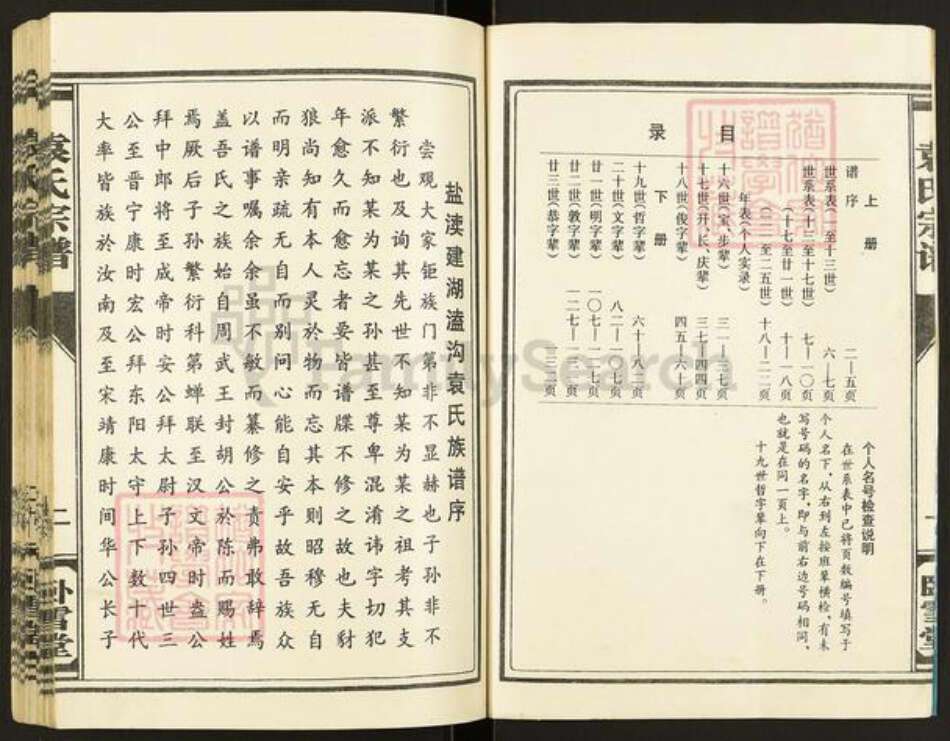 目录
上册
谱序 二—五页
世系表(一至十三世) 六—七页
世系表(十三至十七世) 七—一〇页
(十七至廿一世) 十—一八页
(廿一至二五世) 十八—二二页
年表(个人实录)
十六世(宝、步辈) 二三—三七页
十七世(开、长、庆辈) 三七—四四页
十八世(俊字辈) 四五—六十页
下册
十九世(哲字辈) 六十—八二页
二十世(文字辈) 八二—一〇七页
廿一世(明字辈) 一〇七—一二七页
廿二世(敦字辈)
廿三世(恭字辈)
个人名号检查说明
在世系表中已将页数编号填写于
个人名下,从右到左按班辈横检,有未
写号码的名字,即与前右边号码相同,
也就是在同一页上。
十九世哲字辈向下在下册。
盐渎建湖溘沟袁氏族谱序
尝观大家钜族门第非不显赫也子孙非不
繁衍也及询其先世不知某为某之祖考其支
派不知某为某之孙甚至尊卑混淆讳字切犯
年愈久而愈忘者要皆谱牒不修之故也夫豺
狼尚知有本人灵於物而忘其本则昭穆无自
而明亲疏无自而别问心能自安乎故吾族众
以谱事嘱余余虽不敏而纂修之责弗敢辞焉
盖吾氏之族始自周武王封胡公於陈而赐姓
焉厥后子孙繁衍科第蝉联至汉文帝时盎公
拜中郎将至成帝时安公拜太尉子孙四世三
公至晋宁康时宏公拜东阳太守上下数十代
大率皆族於汝南及至宋靖康时间华公长子
袁氏宗谱
二
卧雪堂
FamilySearch